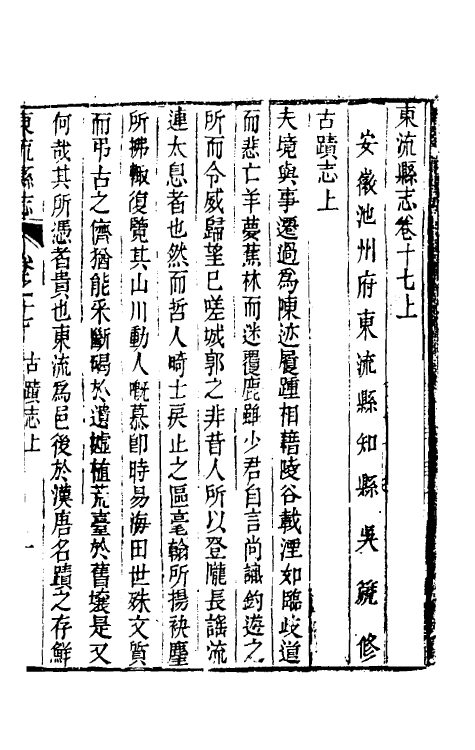 東流縣志卷十七上
安徽池州府東流縣知縣吳篪修
古蹟志上
夫境與事遷過爲陳迹履踵相藉陵谷載湮如臨歧道
而悲亡羊夢蕉林而迷覆鹿雖少君自言尚識釣遊之
所而令威歸望已嗟城郭之非昔人所以登隴長謠流
連太息者也然而哲人畸士戾止之區毫翰所揚袂塵
所拂輙復覽其山川動人慨慕卽時易海田世殊文質
而弔古之儕猶能采斷碣於遺墟植荒臺於舊壤是又
何哉其所憑者貴也東流爲邑後於漢唐名蹟之存鮮
東流縣志 卷之十七 古蹟志上 一